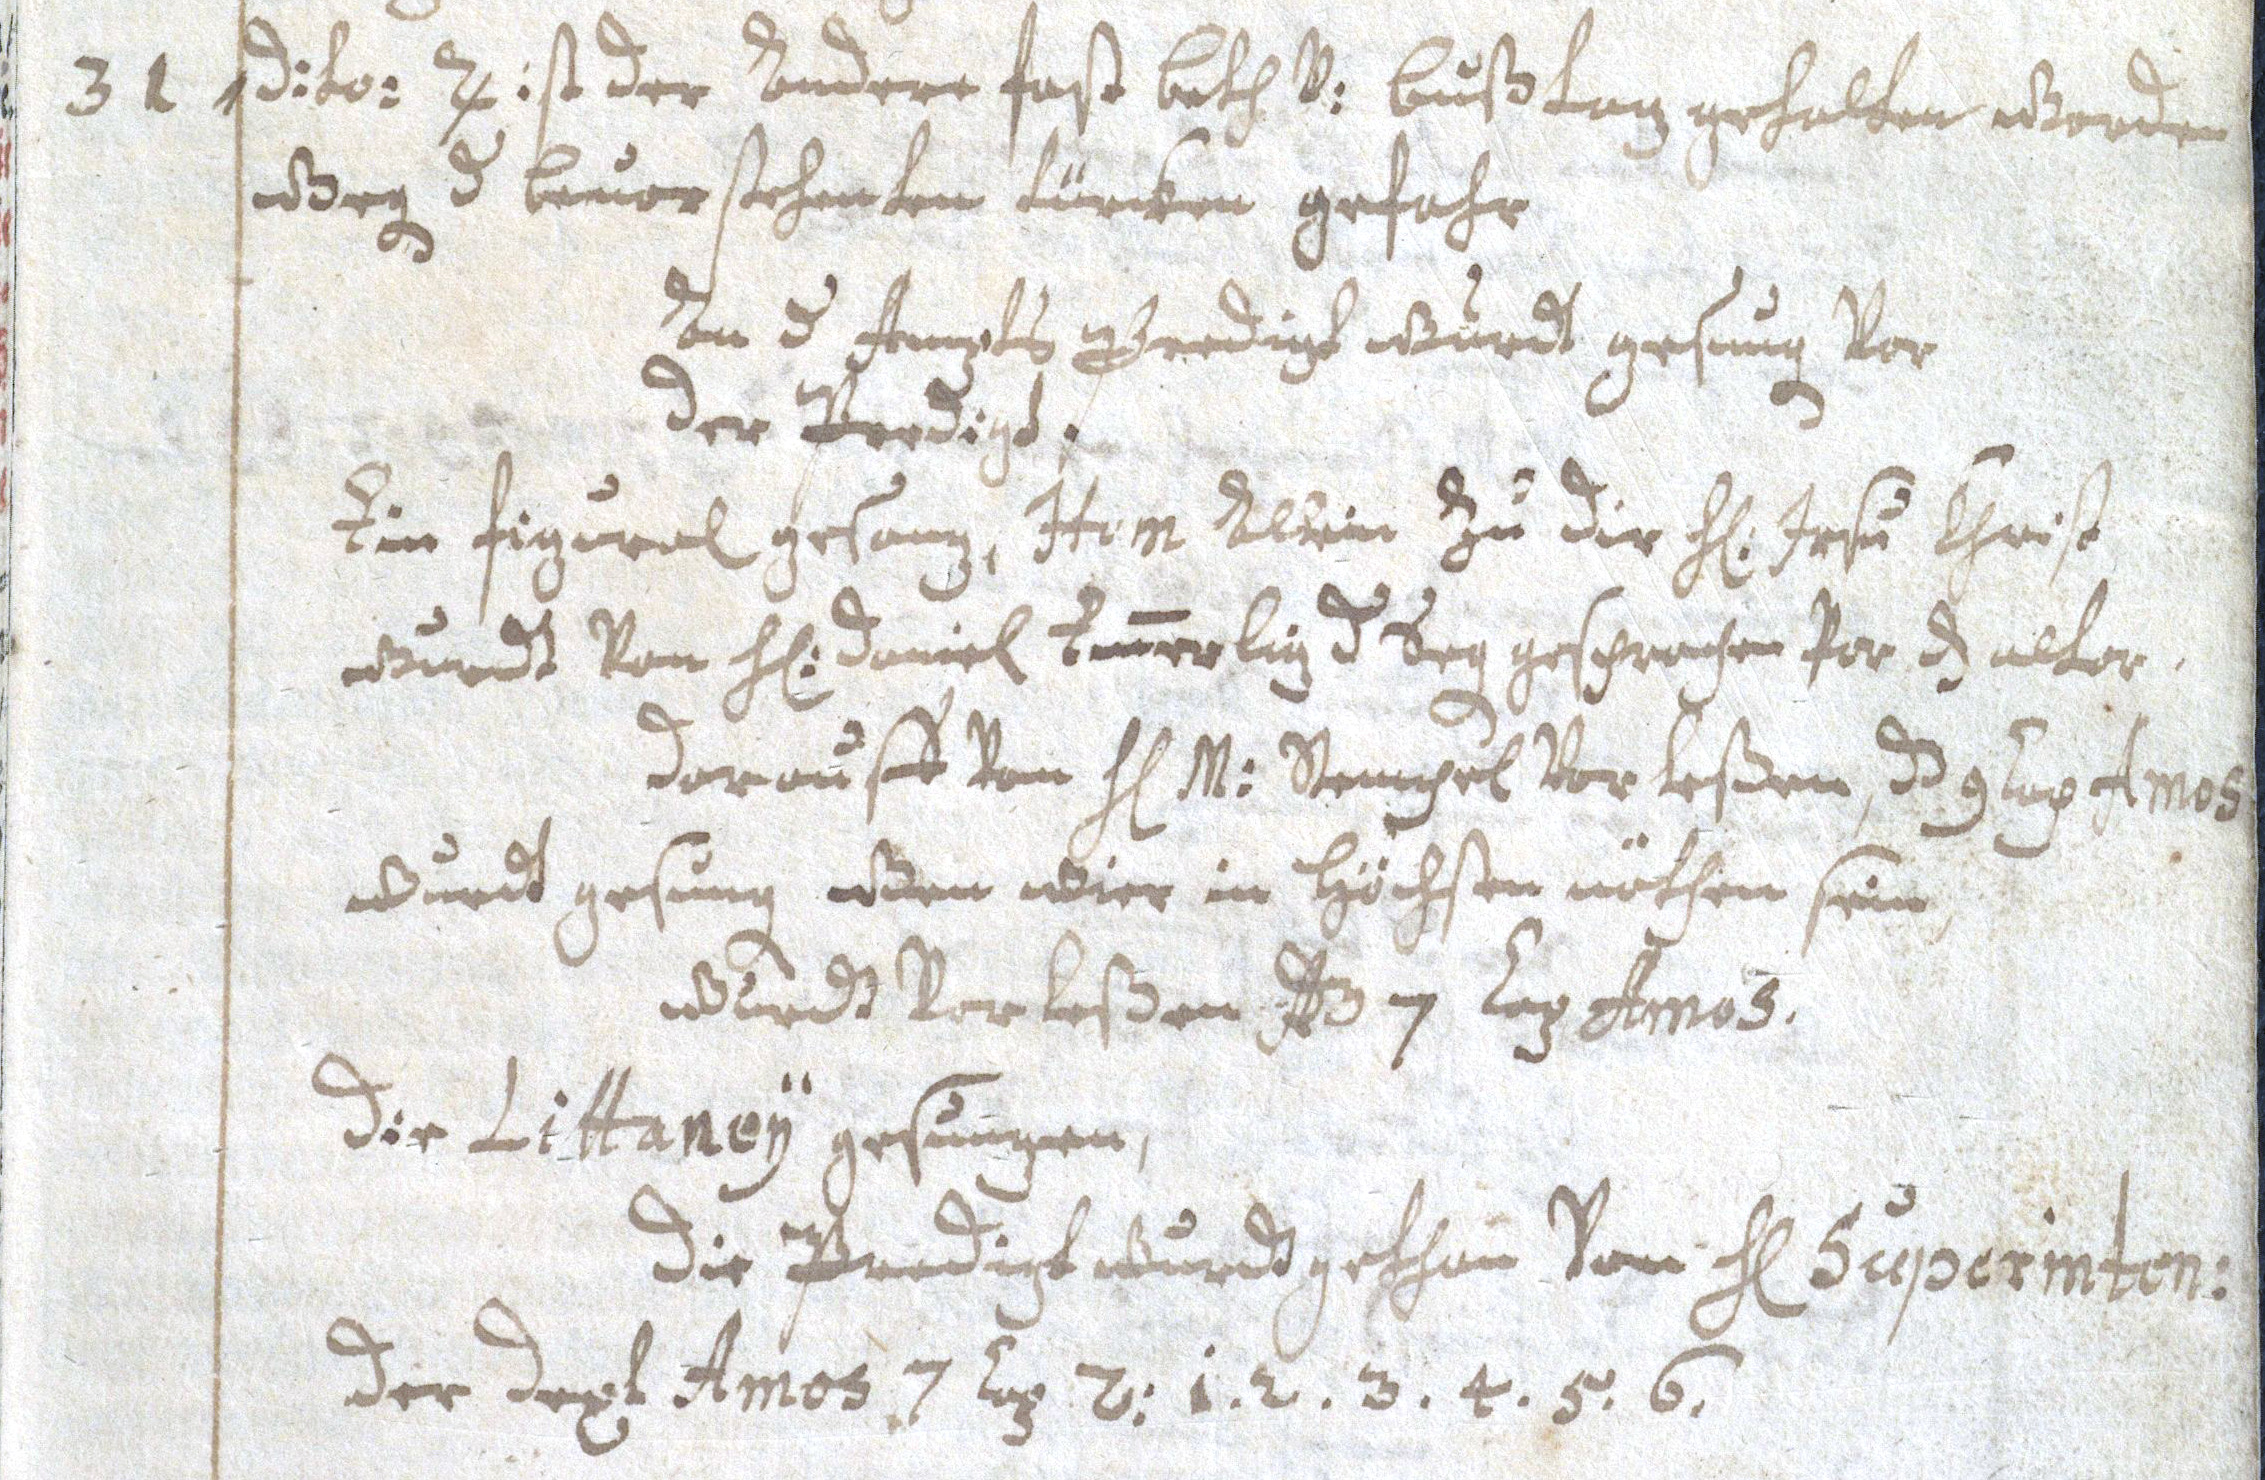 31 dito: ♃ ist der Andere fast beth v: bußtag gehalten worden
Weg d bevorstehenten türcken gefahr
An d Ampts Predigt wurdt gesung Vor
der Predigt.
Ein figural gesang, Item Allein Zu dir H: Jesu Christ
wurdt Von H: Daniel Emerling d Seg gesprochen Vor d altar.
darauff Von H M: Stempel Vorleßen, d 9 Cap Amos
wurdt gesung Wen wier in höchsten nöthen sein,
wurdt Vorleßen 7 Cap Amos.
Die Littaneÿ gesungen,
Die Predigt wurdt gethan Von H Superinten:
Der Dext Amos 7 Cap V: 1. 2. 3. 4. 5. 6.